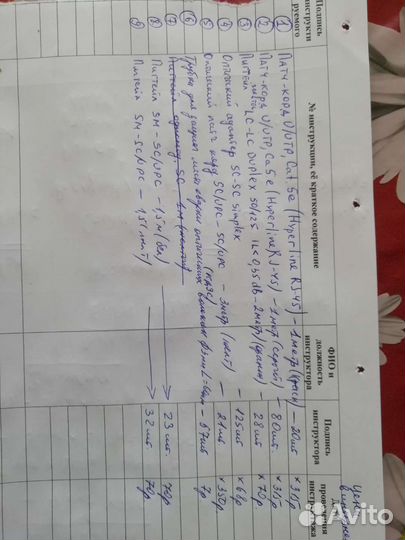 Подпись инструктируемого
№ инструкции, её краткое содержание
ФИО и должность инструктора
Подпись инструктора
проведения инструктажа
Цена
① Патч-корд U/UTP, Cat 5e (Hyperline RJ-45) – 1 метр (красн) – 20шт × 315р
② Патч-корд U/UTP, Ca 5e (Hyperline RJ-45) – 1 метр (серый) – 80шт × 315р
③ Пигтейл LC-LC Duplex 50/125 IL<0,35 db – 2 метр (оранж) – 28шт × 70р
④ Оптический адаптер SC-SC Simplex – 125шт × 68р
⑤ Оптический патч корд SC/UPC – SC/UPC – 3 метр (желт) – 21шт × 350р
⑥ Трубка для защиты места сварки оптических волокон (КДЗС) – 67шт 7р
⑦
⑧ Пигтейл SM – SC/UPC – 1,5м (бел) 23шт 70р
⑨ Пигтейл SM-SC/UPC – 1,5 (желт) 32шт 70р
Avito